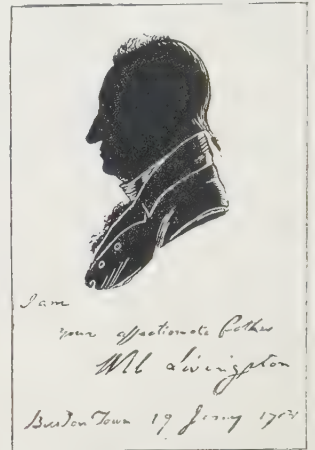 I am
your affectionate father
Wil Livingston
Burton Town 19 Jany